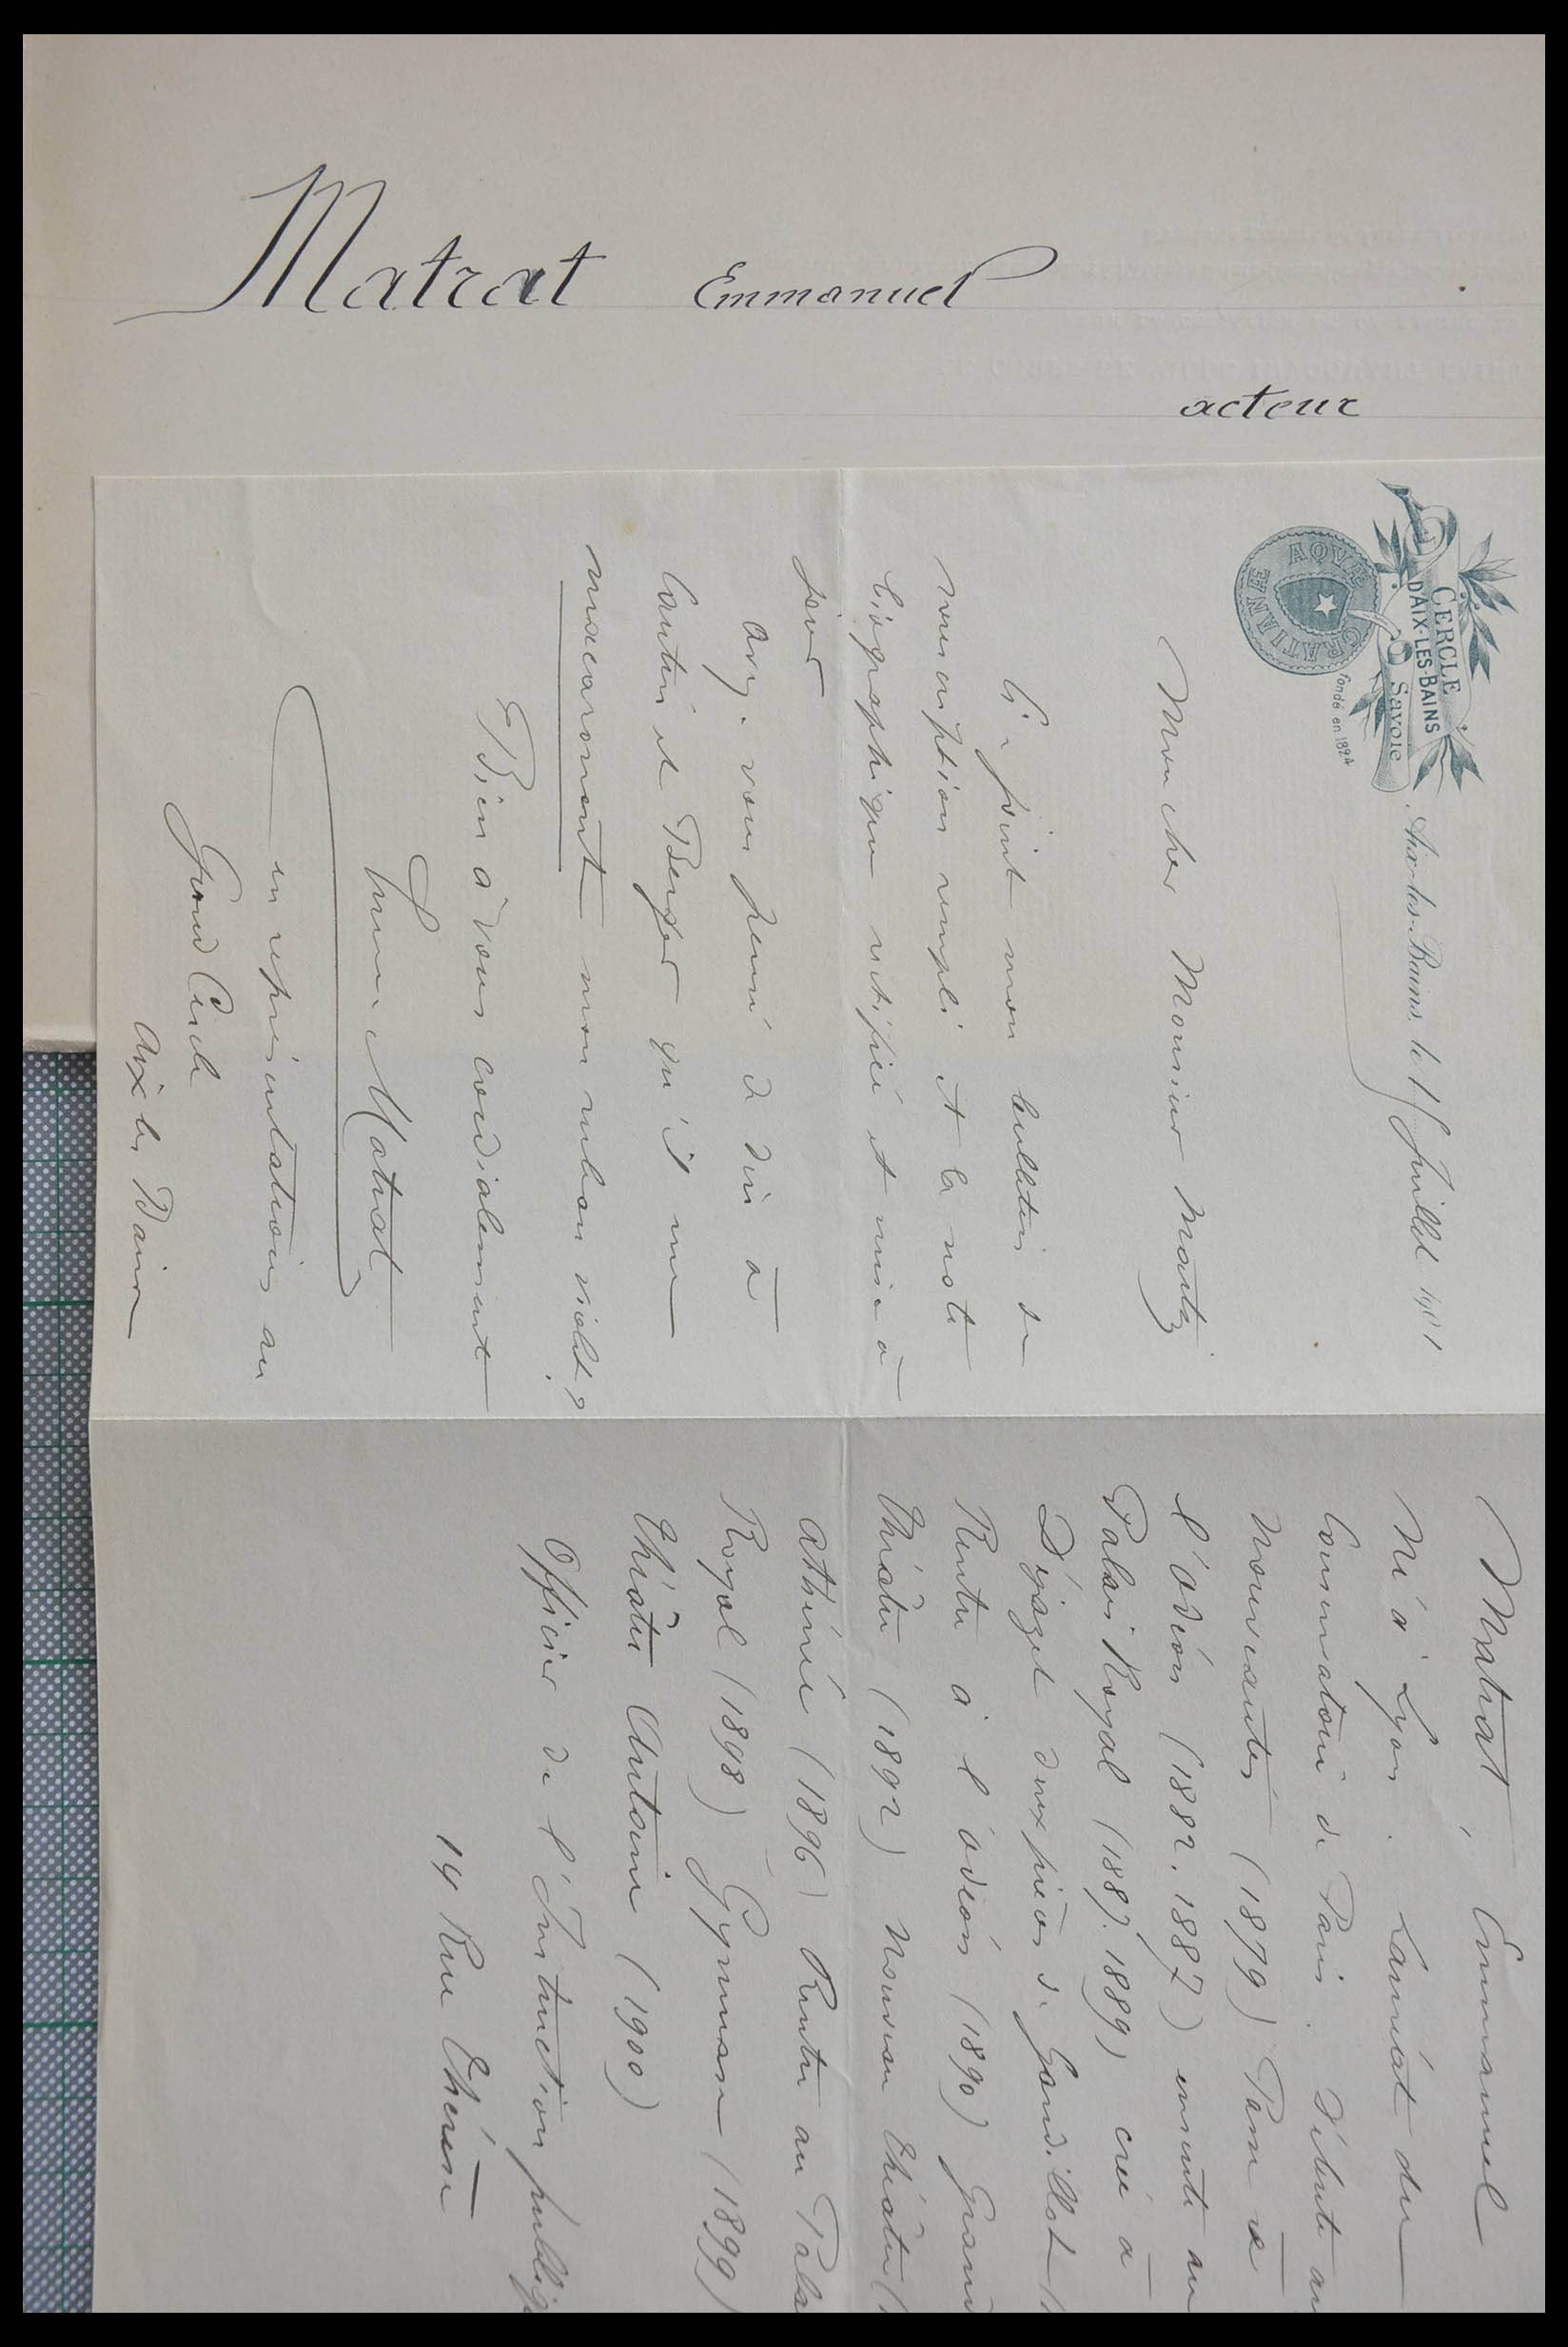 Matrat Emmanuel
acteur
CERCLE
D'AIX-LES-BAINS
Savoie
fondé en 1824
AQVÆ GRATIANÆ
Aix-les-Bains, le 1 Juillet 1901
Mon cher Monsieur Martz
Ci-joint mon bulletin de
souscription rempli et la note
biographique rectifiée et mise à
jour
Avez-vous pensé à dire à
Cantin et Berger qu'il me
mon ruban violet ?
Bien à vous cordialement
Emm. Matrat
en représentations au
Grand Cercle
Aix les Bains
Matrat, Emmanuel
Né à Lyon. Lauréat du
Conservatoire de Paris. Débute au
Nouveautés (1879) Passe à
l'Odéon (1882.1887) ensuite au
Palais Royal (1887.1889) crée à
Déjazet deux pièces de Gandillot
Rentre à l'Odéon (1890) Grand
Théâtre (1892) Nouveau Théâtre
Athénée (1896) Rentre au Pala
Royal (1898) Gymnase (1899)
Théâtre Antoine (1900)
Officier de l'Instruction publiq
14 Rue Thérèse